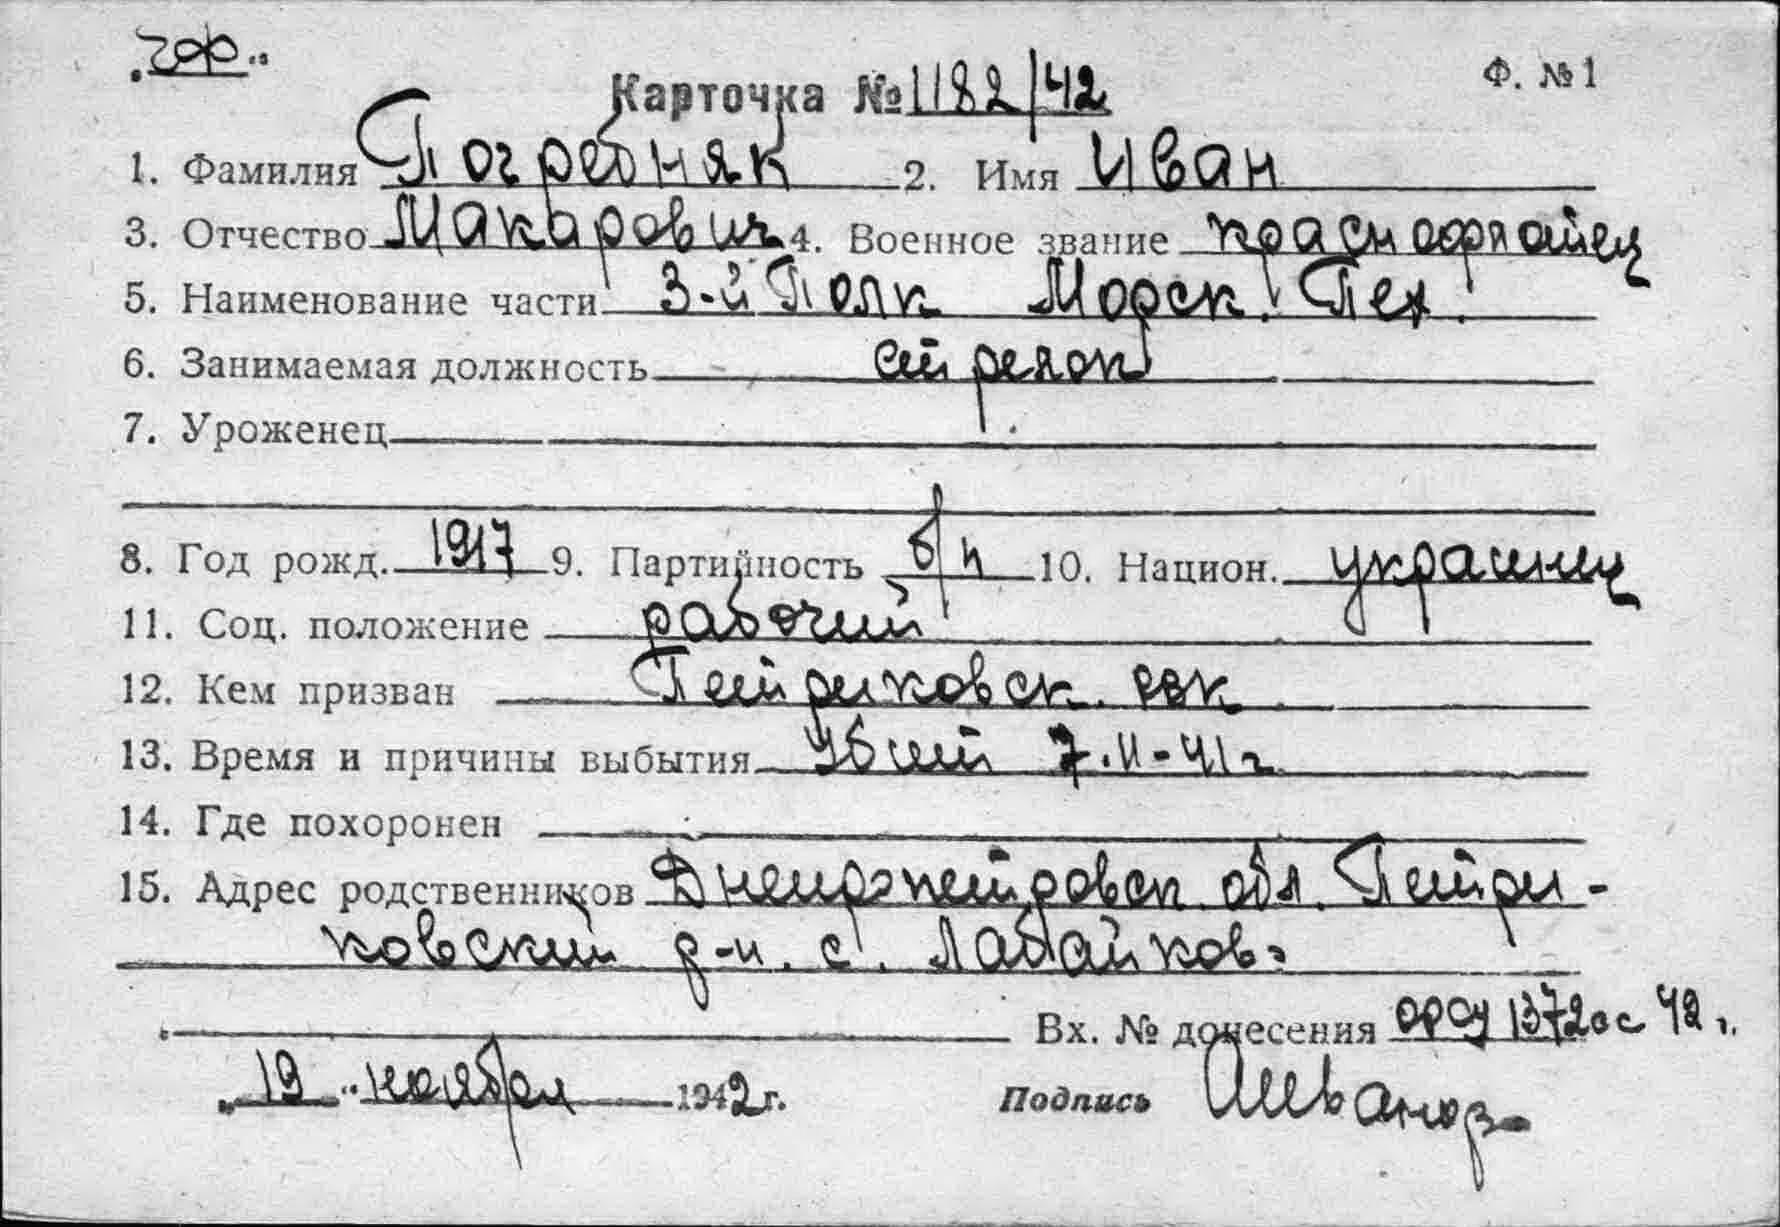 чф.
Ф. №1
Карточка № 1182/42
1. Фамилия Погребняк 2. Имя Иван
3. Отчество Макарович 4. Военное звание краснофлотец
5. Наименование части 3-й Полк Морск. Пех.
6. Занимаемая должность стрелок
7. Уроженец
8. Год рожд. 1917 9. Партийность б/п 10. Национ. украинец
11. Соц. положение рабочий
12. Кем призван Петриковск. рвк
13. Время и причины выбытия Убит 7.11-41 г
14. Где похоронен
15. Адрес родственников Днепропетровск. обл. Петри-
ковский р-н. с. Лабайково
Вх. № донесения 1372сс 42 г.
„19" ноября 1942 г. Подпись